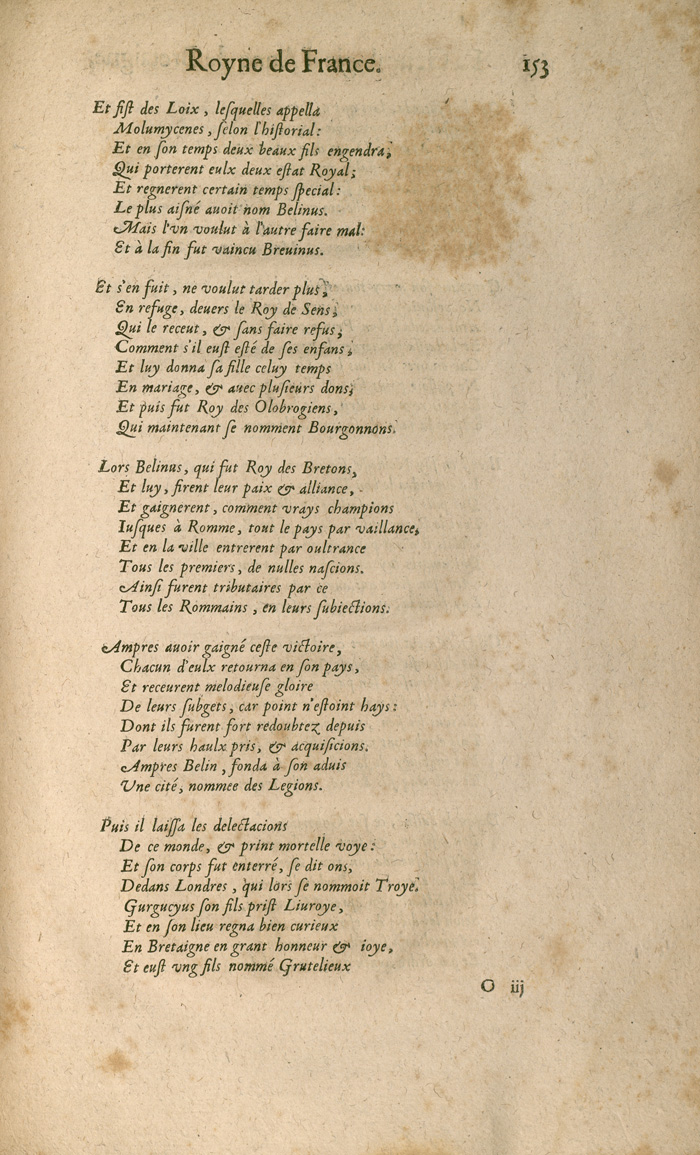 Royne de France. 153
Et fiſt des Loix, leſquelles appella
Molumycenes, ſelon l'hiſtorial:
Et en ſon temps deux beaux fils engendra;
Qui porterent eulx deux eſtat Royal;
Et regnerent certain temps ſpecial:
Le plus aiſné auoit nom Belinus.
Mais l'vn voulut à l'autre faire mal:
Et à la fin fut vaincu Breuinus.
Et s'en fuit, ne voulut tarder plus;
En refuge, deuers le Roy de Sens;
Qui le receut, & ſans faire refus;
Comment s'il euſt eſté de ſes enfans;
Et luy donna ſa fille celuy temps
En mariage, & auec pluſieurs dons;
Et puis fut Roy des Olobrogiens,
Qui maintenant ſe nomment Bourgonnons.
Lors Belinus, qui fut Roy des Bretons,
Et luy, firent leur paix & alliance,
Et gaignerent, comment vrays champions
Iuſques à Romme, tout le pays par vaillance,
Et en la ville entrerent par oultrance
Tous les premiers, de nulles naſcions.
Ainſi furent tributaires par ce
Tous les Rommains, en leurs ſubiections.
Ampres auoir gaigné ceſte victoire,
Chacun d'eulx retourna en ſon pays,
Et receurent melodieuſe gloire
De leurs ſubgets, car point n'eſtoint hays:
Dont ils furent fort redoubtez depuis
Par leurs haulx pris, & acquiſicions.
Ampres Belin, fonda à ſon aduis
Vne cité, nommee des Legions.
Puis il laiſſa les delectacions
De ce monde, & print mortelle voye:
Et ſon corps fut enterré, ſe dit ons,
Dedans Londres, qui lors ſe nommoit Troye.
Gurgucyus ſon fils priſt Liuroye,
Et en ſon lieu regna bien curieux
En Bretaigne en grant honneur & ioye,
Et euſt vng fils nommé Grutelieux
O iij